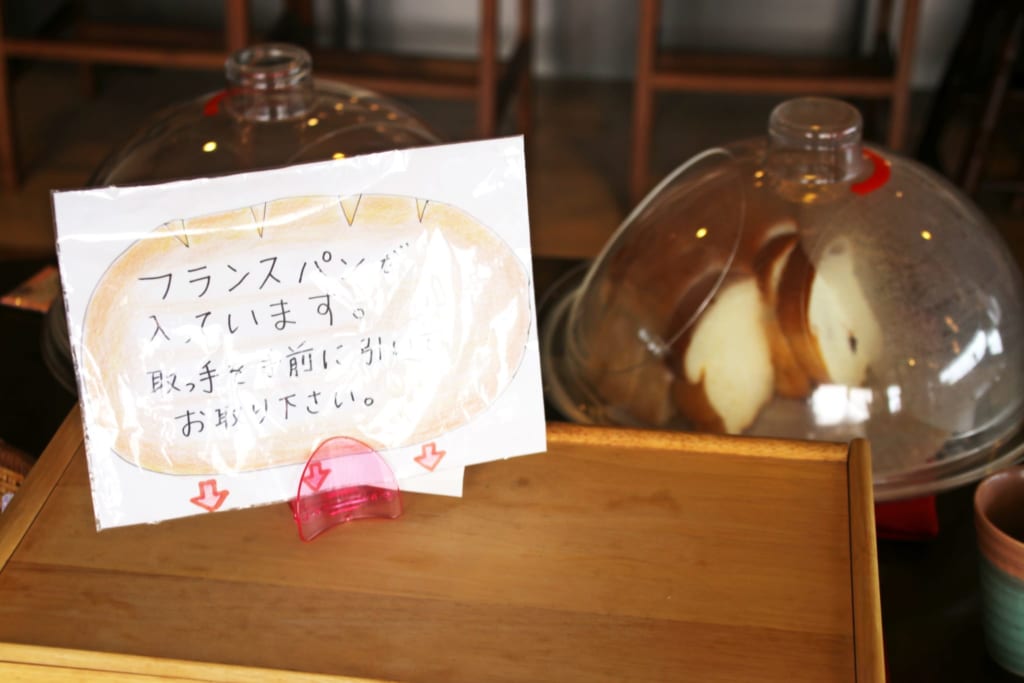 フランスパンが
入っています。
取っ手を手前に引いて
お取り下さい。